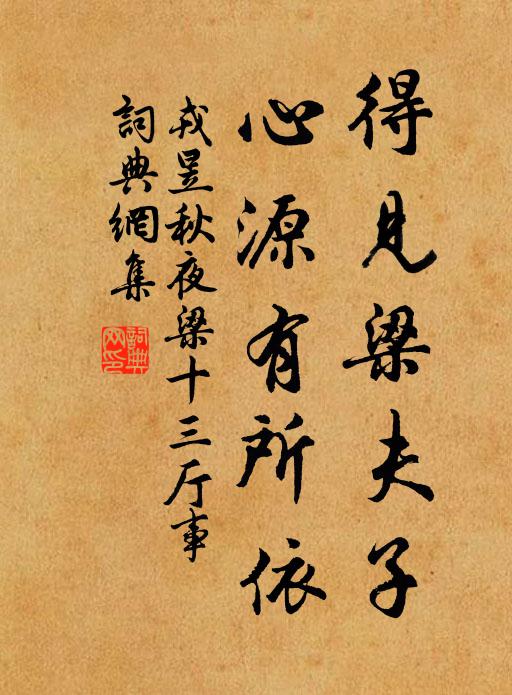 得见梁夫子
心源有所依
戎昱秋夜梁十三厅事
詞典網集
詞典網印